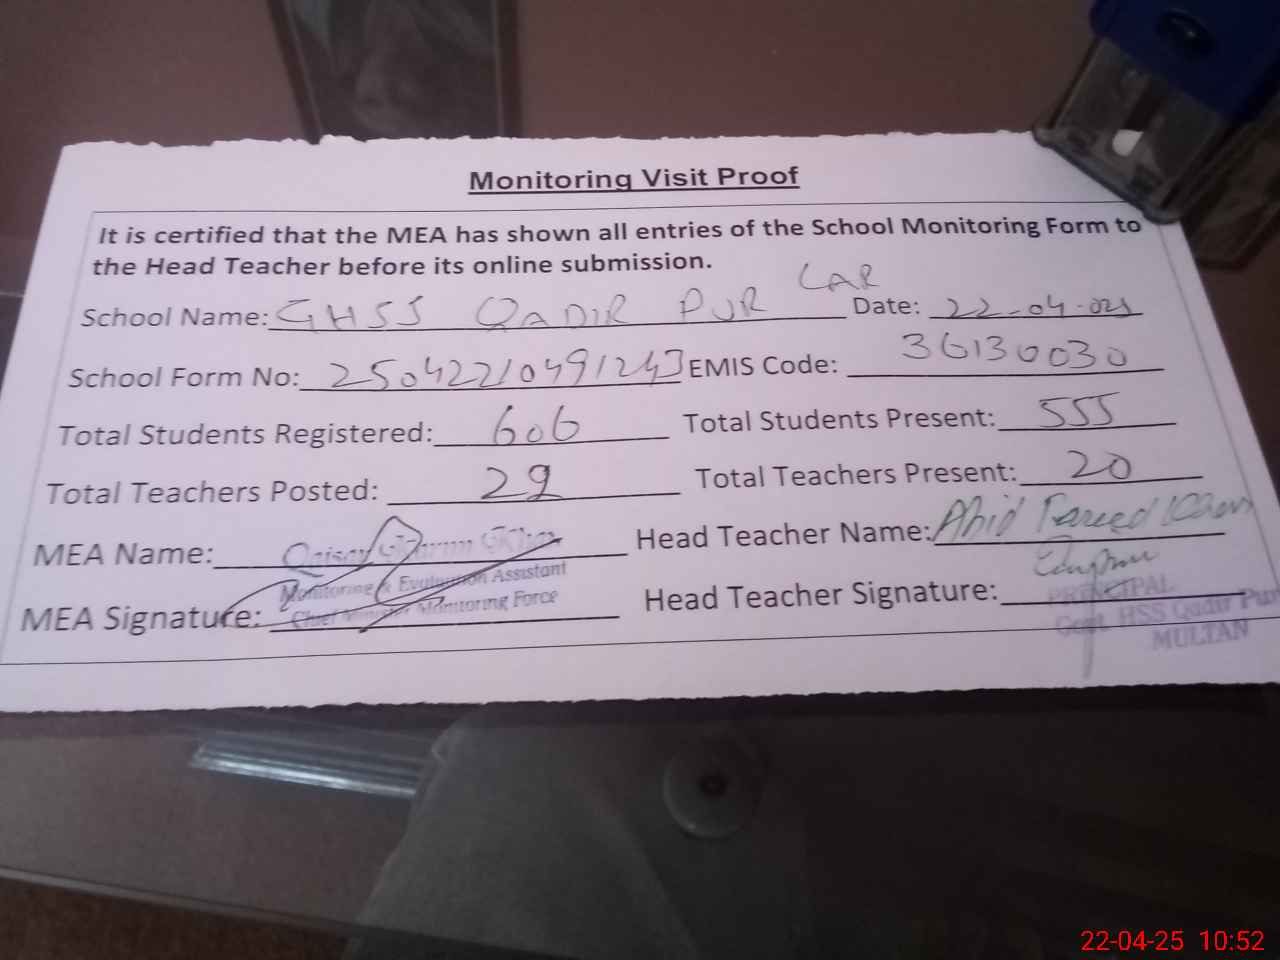 Monitoring Visit Proof
It is certified that the MEA has shown all entries of the School Monitoring Form to
the Head Teacher before its online submission.
School Name: GHSS QADIR PUR LAR Date: 22-04-025
School Form No: EMIS Code: 36130030
Total Students Registered: 606 Total Students Present: 555
Total Teachers Posted: 29 Total Teachers Present: 20
MEA Name: Head Teacher Name: Abid Fareed Khan
Monitoring & Evaluation Assistant
Chief Minister Monitoring Force
MEA Signature: Head Teacher Signature:
PRINCIPAL
Govt. HSS Qadir Pur
MULTAN
22-04-25 10:52